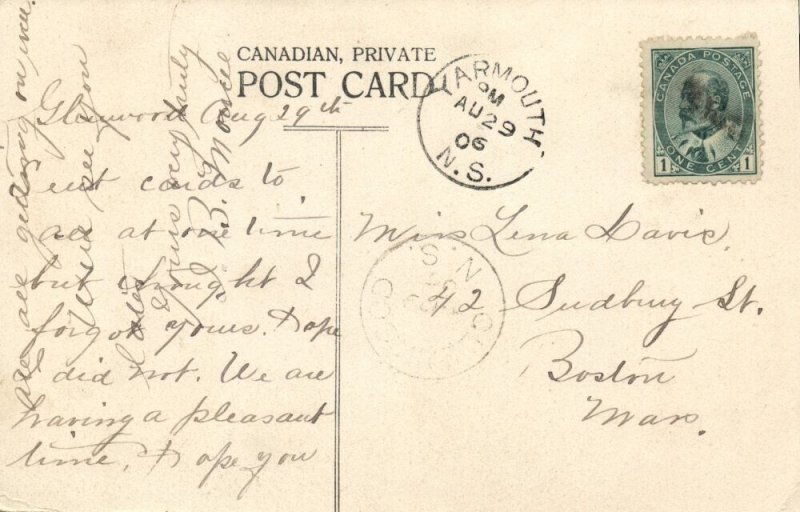 CANADIAN, PRIVATE
POST CARD
YARMOUTH
PM
AU 29
06
N.S.
CANADA POSTAGE
1 ONE CENT 1
Glenwood Aug 29th
sent cards to
all at one time
but thought I
forgot yours. Hope
I did not. We are
having a pleasant
time. Hope you
are all getting on well.
Will see you
later
Yours very truly
B.
Miss Lena Davis,
42 Sudbury St.
Boston
Mass.